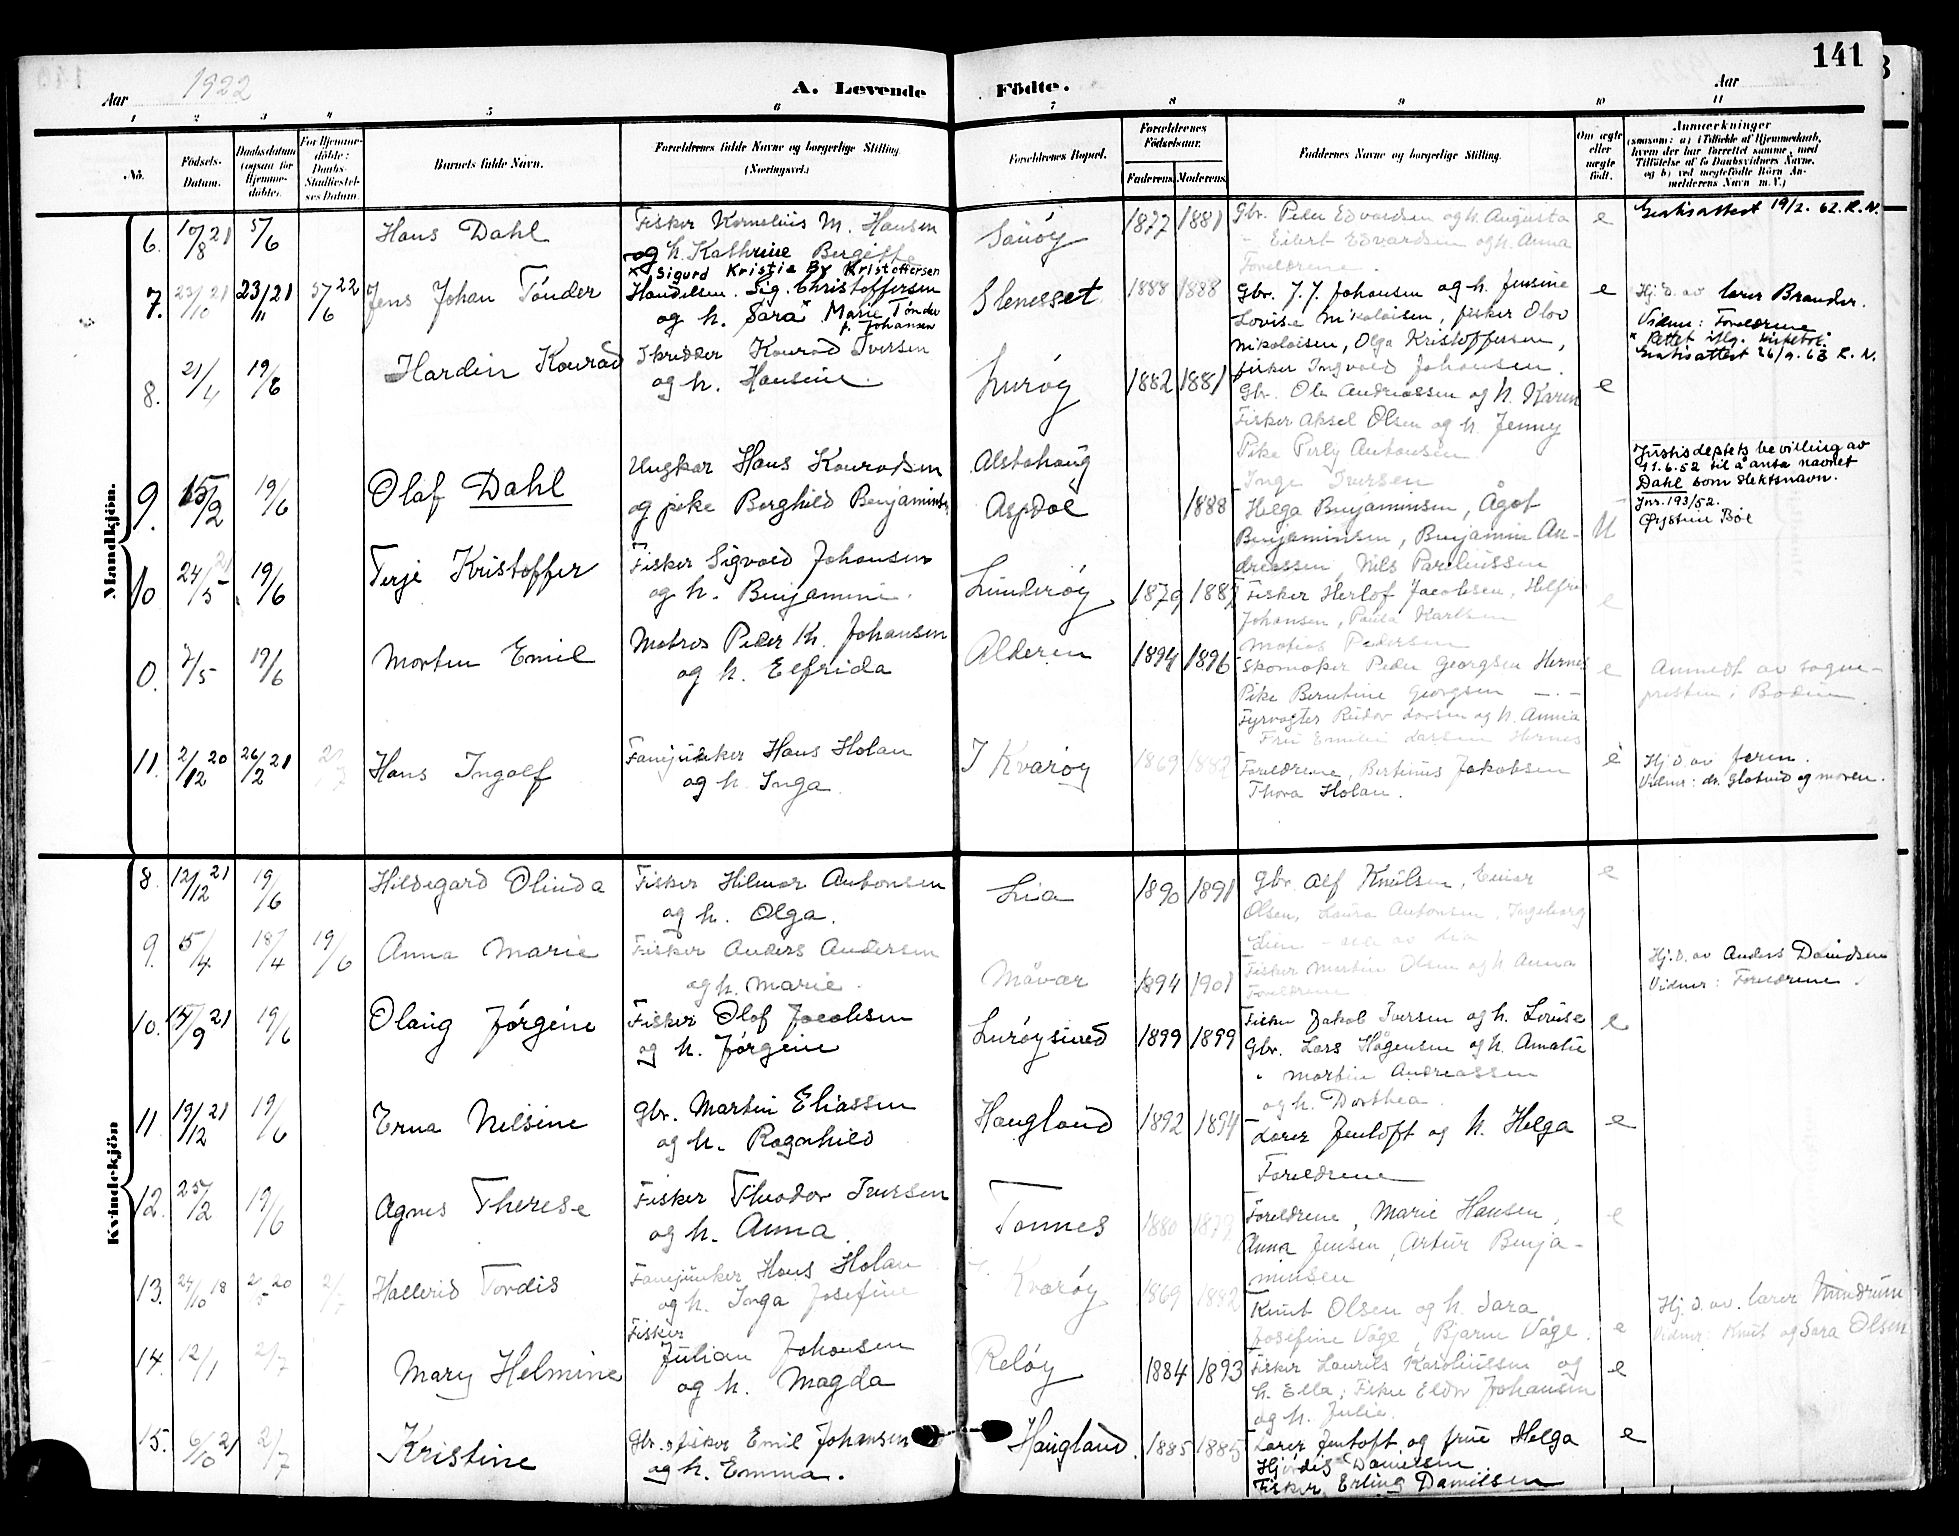 141
Aar 1922
A. Levende Födte.
Aar
1 2 3 4 5 6 7 8 9 10 11
No.
Födsels-Datum.
Daabsdatum (ogsaa for Hjemmedöbte).
For Hjemmedöbte: Daabs-Stadfæstelses Datum.
Barnets fulde Navn.
Forældrenes fulde Navne og borgerlige Stilling (Næringsvei.)
Forældrenes Bopæl.
Forældrenes Födselsaar.
Faderens. Moderens.
Faddernes Navne og borgerlige Stilling.
Om ægte eller uægte födt.
Anmærkninger
(saasom: a) i Tilfælde af Hjemmedaab, hvem der har forrettet samme, med Tilföielse af to Daabsvidners Navne, og b) ved uægtefödte Börn Anmelderens Navn m. V.)
Mandkjön.
6. 10/8 21 5/6 Hans Dahl
Fisker Kornelius M. Hansen
og h. Kathrine Bergitte
Sörøy 1877 1881
Gbr. Peder Edvardsen og h. Augusta
- Eilert Edvardsen og h. Anna
Foreldrene.
e
Gratisattest 19/2. 62. R. N.
7. 23/10 21 23/11 21 5/6 22 Jens Johan Tønder
x Sigurd Kristie By Kristoffersen
Handelsm. Sig. Christoffersen
og h. Sara x Marie Tønder
f. Johansen
Stenesset 1888 1888
Gbr. J. J. Johansen og h. Jensine
Lovise Nikolaisen, fisker Olov
Nikolaisen, Olga Kristoffersen,
fisker Ingvald Johansen.
e
Hj. d. av lærer Brander.
Vidner: Foreldrene
x Rettet iflg. kirkebok.
Gratisattest 26/9. 63 R. N.
8. 21/4 19/6 Hardin Konrad
Skredder Konrad Iversen
og h. Hansine.
Lurøy 1882 1881
Gbr. Ole Andreassen og h. Karen
Fisker Aksel Olsen og h. Jenny
Pike Perly Antonsen
Inga Iversen
e
9. 15/2 19/6 Olaf Dahl
Ungkar Hans Konradsen
og pike Borghild Benjamins.
Alstahaug
Aspdal 1888
Helga Benjaminsen, Ågot
Benjaminsen, Benjamin An-
dreassen, Nils Pareliussen
U
Justisdeptets bevilling av
11.6.52 til å anta navnet
Dahl som slektsnavn.
Jnr. 193/52.
Øystein Bøe
10 24/5 21 19/6 Terje Kristoffer
Fisker Sigvald Johansen
og h. Benjamine.
Lunderøy 1879 1887
Fisker Herlof Jacobsen, Helfri
Johansen, Paula Karlsen
Matias Pedersen
e
0. 7/5 19/6 Morten Emil
Matros Peder Kr. Johansen
og h. Elfrida
Alderen 1894 1896
Skomaker Peder Georgsen Hernes
Pike Berntine Georgsen — . -
Fyrvogter Reidar Larsen og h. Annia
Fru Emilie Larsen Hernes
e
Anmeldt av sogne-
presten i Bodin.
11. 2/12 20 26/2 21 2/7 Hans Ingolf
Fanejunker Hans Holan
og h. Inga
I Kvarøy 1869 1882
Foreldrene, Bertinus Jakobsen
Thora Holan.
e
Hj. d. av faren.
Vidner: dr. Glatved og moren.
Kvindekjön
8. 12/12 21 19/6 Hildegard Olinda
Fisker Hilmar Antonsen
og h. Olga.
Lia 1890 1891
Gbr. Alf Knutsen, Einar
Olsen, Laura Antonsen, Ingeborg
Lien - alle av Lia
e
9. 15/4 18/4 19/6 Anna Marie
Fisker Anders Andersen
og h. Marie.
Måvær 1894 1901
Fisker Martin Olsen og h. Anna
Foreldrene
Hj. d. av Anders Davidsen
Vidner: Foreldrene.
10. 15/9 21 19/6 Olaug Jørgine
Fisker Olaf Jacobsen
og h. Jørgine
Lurøysund 1899 1899
Fisker Jakob Iversen og h. Lovise
Gbr. Lars Hågensen og h. Amalie
" Martin Andreassen
og h. Dorthea.
e
11. 19/12 21 19/6 Erna Nilsine
Gbr. Martin Eliassen
og h. Ragnhild
Haugland 1892 1894
Lærer Jentoft og h. Helga
Foreldrene
e
12. 25/2 19/6 Agnes Therese
Fisker Theodor Iversen
og h. Anna.
Tonnes 1880 1879
Foreldrene, Marie Hansen,
Anna Jensen, Artur Benja-
minsen
e
13. 24/10 18 2/5 20 2/7 Hallerid Tordis
Fanejunker Hans Holan
og h. Inga Josefine
Kvarøy 1869 1882
Knut Olsen og h. Sara
Josefine Våge, Bjarne Våge.
e
Hj. d. av. lærer Mindrum
Vidner: Knut og Sara Olsen
14. 12/1 2/7 Mary Helmine
Fisker
Julian Johansen
og h. Magda
Reløy 1884 1893
Fisker Laurits Karoliussen og
h. Ella; Fisker Eldor Johansen
og h. Julie.
e
15. 6/10 21 2/7 Kristine
Gbr. & fisker Emil Johansen
og h. Emma.
Haugland. 1885 1885
Lærer Jentoft og frue Helga
Hjørdis Danielsen
Fisker Erling Danielsen
e